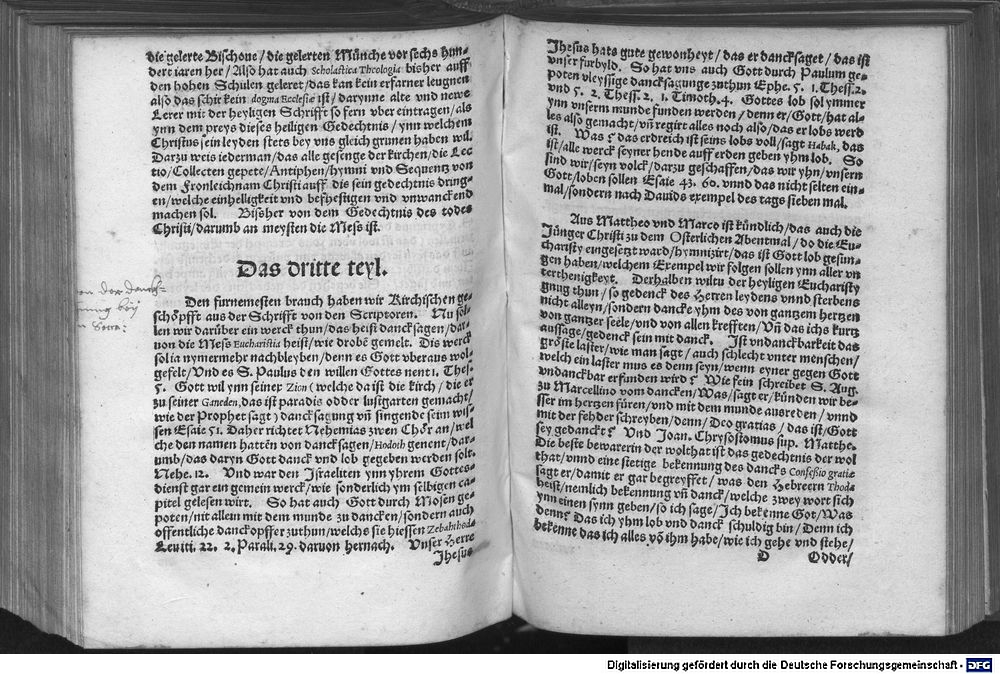 die gelerte Bischoue/die gelerten Münche vor sechs hun-
dert iaren her/Also hat auch Scholastica Theologia bisher auff
den hohen Schulen geleret/das kan kein erfarner leugnen
also das schir kein dogma Ecclesiæ ist/darynne alte vnd newe
Lerer mit der heyligen Schrifft so fern vber eintragen/als
ynn dem preys dieses heiligen Gedechtnis/ynn welchem
Christus sein leyden stets bey vns gleich grunen haben wil.
Darzu weis iederman/das alle gesenge der kirchen/die Lec
tio/Collecten gepete/Antiphen/hymni vnd Sequentz von
dem Fronleichnam Christi auff die sein gedechtnis dring-
en/welche einhelligkeit vnd befhestigen vnd vnwanckend
machen sol. Bisher von dem Gedechtnis des todes
Christi/darumb an meysten die Mess ist.
Das dritte teyl.
Den furnemesten brauch haben wir Kirchischen ge-
schöpfft aus der Schrifft von den Scriptoren. Nu sol-
len wir darüber ein werck thun/das heist dancksagen/dar-
uon die Mess Eucharistia heist/wie drobē gemelt. Dis werck
sol ia nymermehr nachbleyben/denn es Gott vberaus wol-
gefelt/Vnd es S. Paulus den willen Gottes nent 1. Thes.
5. Gott wil ynn seiner Zion (welche da ist die kirch/die er
zu seiner Ganeden, das ist paradis odder lustgarten gemacht/
wie der Prophet sagt) dancksagung vñ singende stim wis-
sen Esaie 51. Daher richtet Nehemias zwen Chör an/wel
che den namen hatten von dancksagen/Hodoth genent/dar-
umb/das daryn Gott danck vnd lob gegeben werden solt.
Nehe. 12. Vnd war den Israeliten ynn yhrem Gottes-
dienst gar ein gemein werck/wie sonderlich ym selbigen ca-
pitel gelesen wirt. So hat auch Gott durch Mosen ge-
poten/nit allein mit dem munde zu dancken/sondern auch
offentliche danckopffer zuthun/welchs sie hiessen
Leuiti. 22. 2. Parali. 29. daruon hernach. Vnser Herre
Jhesus
Jhesus hats gute gewonheyt/das er dancksaget/das ist
vnser furbyld. So hat vns auch Gott durch Paulum ge-
poten vleyssige dancksagunge zuthun Ephe. 5. 1. Thess. 2.
vnd 5. 2. Thess. 2. 1. Timoth. 4. Gottes lob sol ymmer
ynn vnserm munde funden werden/denn er/Gott/hat al-
les also gemacht/vñ regirt alles noch also/das er lobs werd
ist. Was? das erdreich ist seins lobs voll/sagt Habak, das
ist/alle werck seyner hende auff erden geben yhm lob. So
sind wir/seyn volck/darzu geschaffen/das wir yhn/vnsern
Gott/loben sollen Esaie 43. 60. vnnd das nicht selten ein-
mal/sondern nach Dauids exempel des tags sieben mal.
Aus Mattheo vnd Marco ist kündlich/das auch die
Jünger Christi zu dem Osterlichen Abentmal/do die Eu-
charisty eingesetzt ward/hymnizirt/das ist Gott lob gesun-
gen haben/welchem Exempel wir folgen sollen ynn aller vn
terthenigkeyt. Derhalben wiltu der heyligen Eucharisty
gnug thun/so gedenck des Herren leydens vnnd sterbens
nicht alleyn/sondern dancke yhm des von gantzem hertzen
von gantzer seele/vnd von allen krefften/Vñ das ichs kurtz
aussage/gedenck sein mit danck. Ist vndanckbarkeit das
gröste laster/wie man sagt/auch schlecht vnter menschen/
welch ein laster mus es denn seyn/wenn eyner gegen Gott
vndanckbar erfunden wird? Wie fein schreibet S. Aug.
zu Marcellino vom dancken/Was/sagt er/künden wir bes-
ser im hertzen füren/vnd mit dem munde ausreden/vnnd
mit der fehder schreyben/denn/Deo gratias/das ist/Gott
sey gedanckt? Vnd Joan. Chrysostomus sup. Matthe.
Die beste bewarerin der wolthat ist das gedechtnis der wol
that/vnnd eine stetige bekennung des dancks Confeßio gratiæ
sagt er/damit er gar begreyffet/was den Hebreern Thoda
heist/nemlich bekennung vñ danck/welche zwey wort sich
ynn einen synn geben/so ich sage/Ich bekenne Got/Was
denn? Das ich yhm lob vnd danck schuldig bin/Denn ich
bekenne das ich alles vō ihm habe/wie ich gehe vnd stehe/
D Odder/
Digitalisierung gefördert durch die Deutsche Forschungsgemeinschaft - DFG